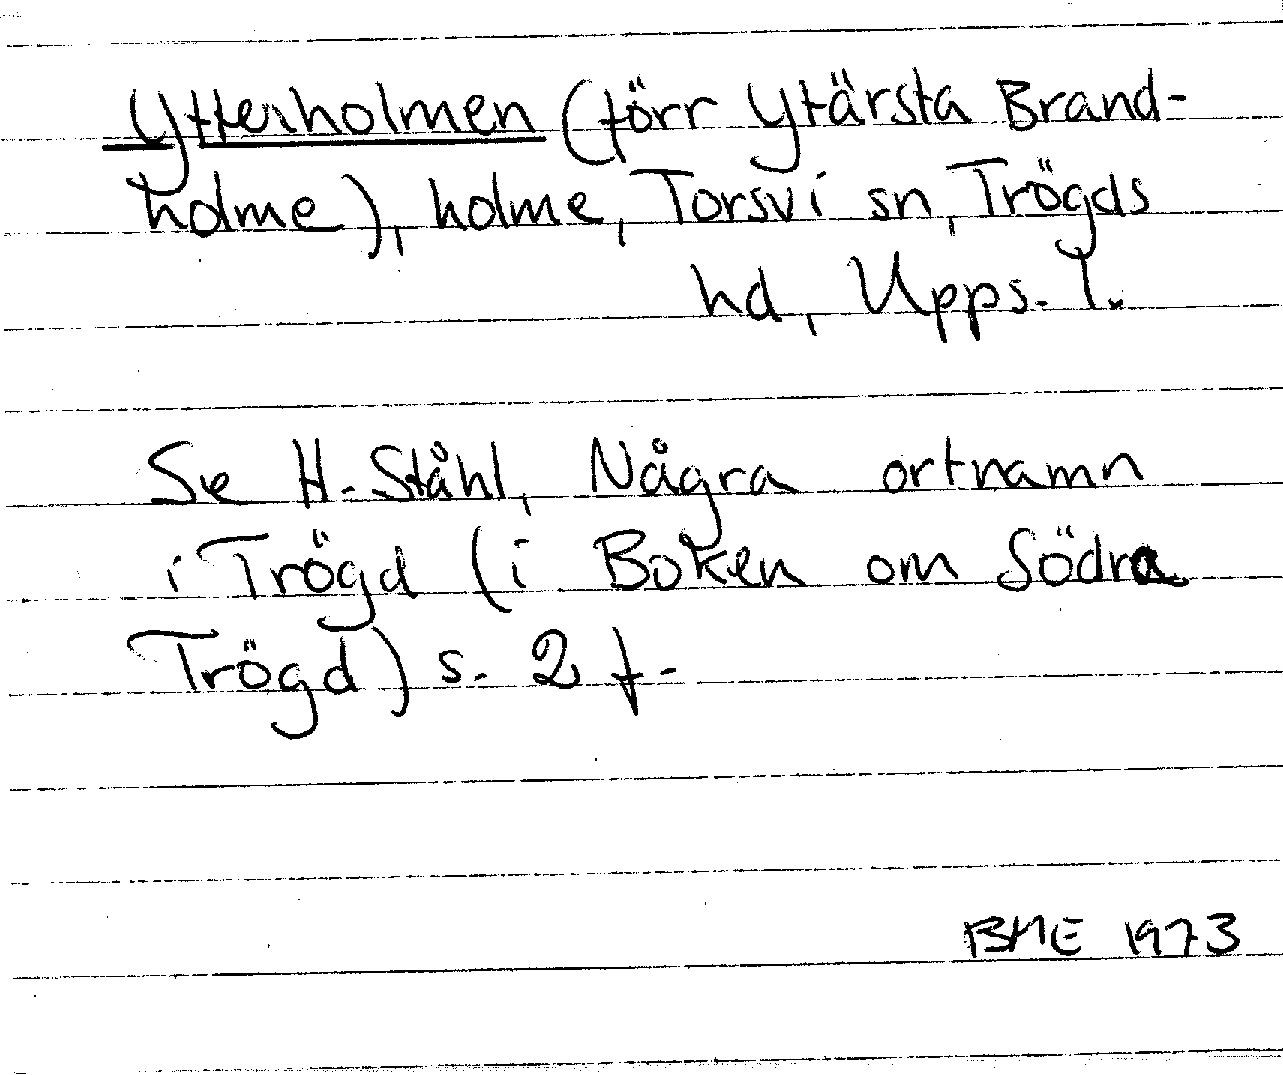 Ytterholmen (förr Ytärsta Brand-
holme), holme, Torsvi sn, Trögds
hd, Upps. l.
Se H. Ståhl, Några ortnamn
i Trögd (i Boken om Södra
Trögd) s. 2 f.
BME 1973